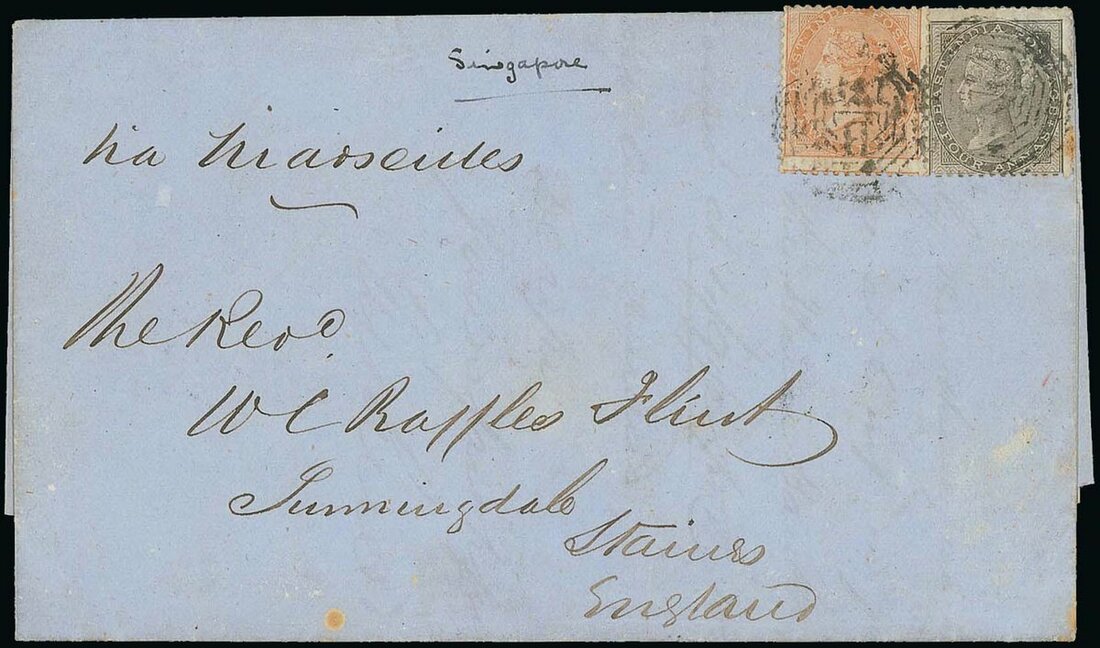 Singapore
via Marseilles
The Revd
W C Raffles Flint
Sunningdale
Staines
England
EAST INDIA POSTAGE
FOUR ANNAS